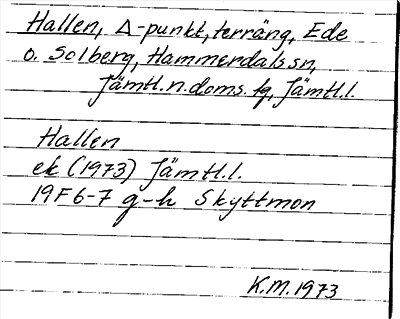 Hallen, Δ-punkt, terräng, Ede
o. Solberg, Hammerdals sn,
Jämtl. n. doms. tg, Jämtl. l.
Hallen
ek (1973) Jämtl. l.
19F6-7 g-h Skyttmon
K.M. 1973